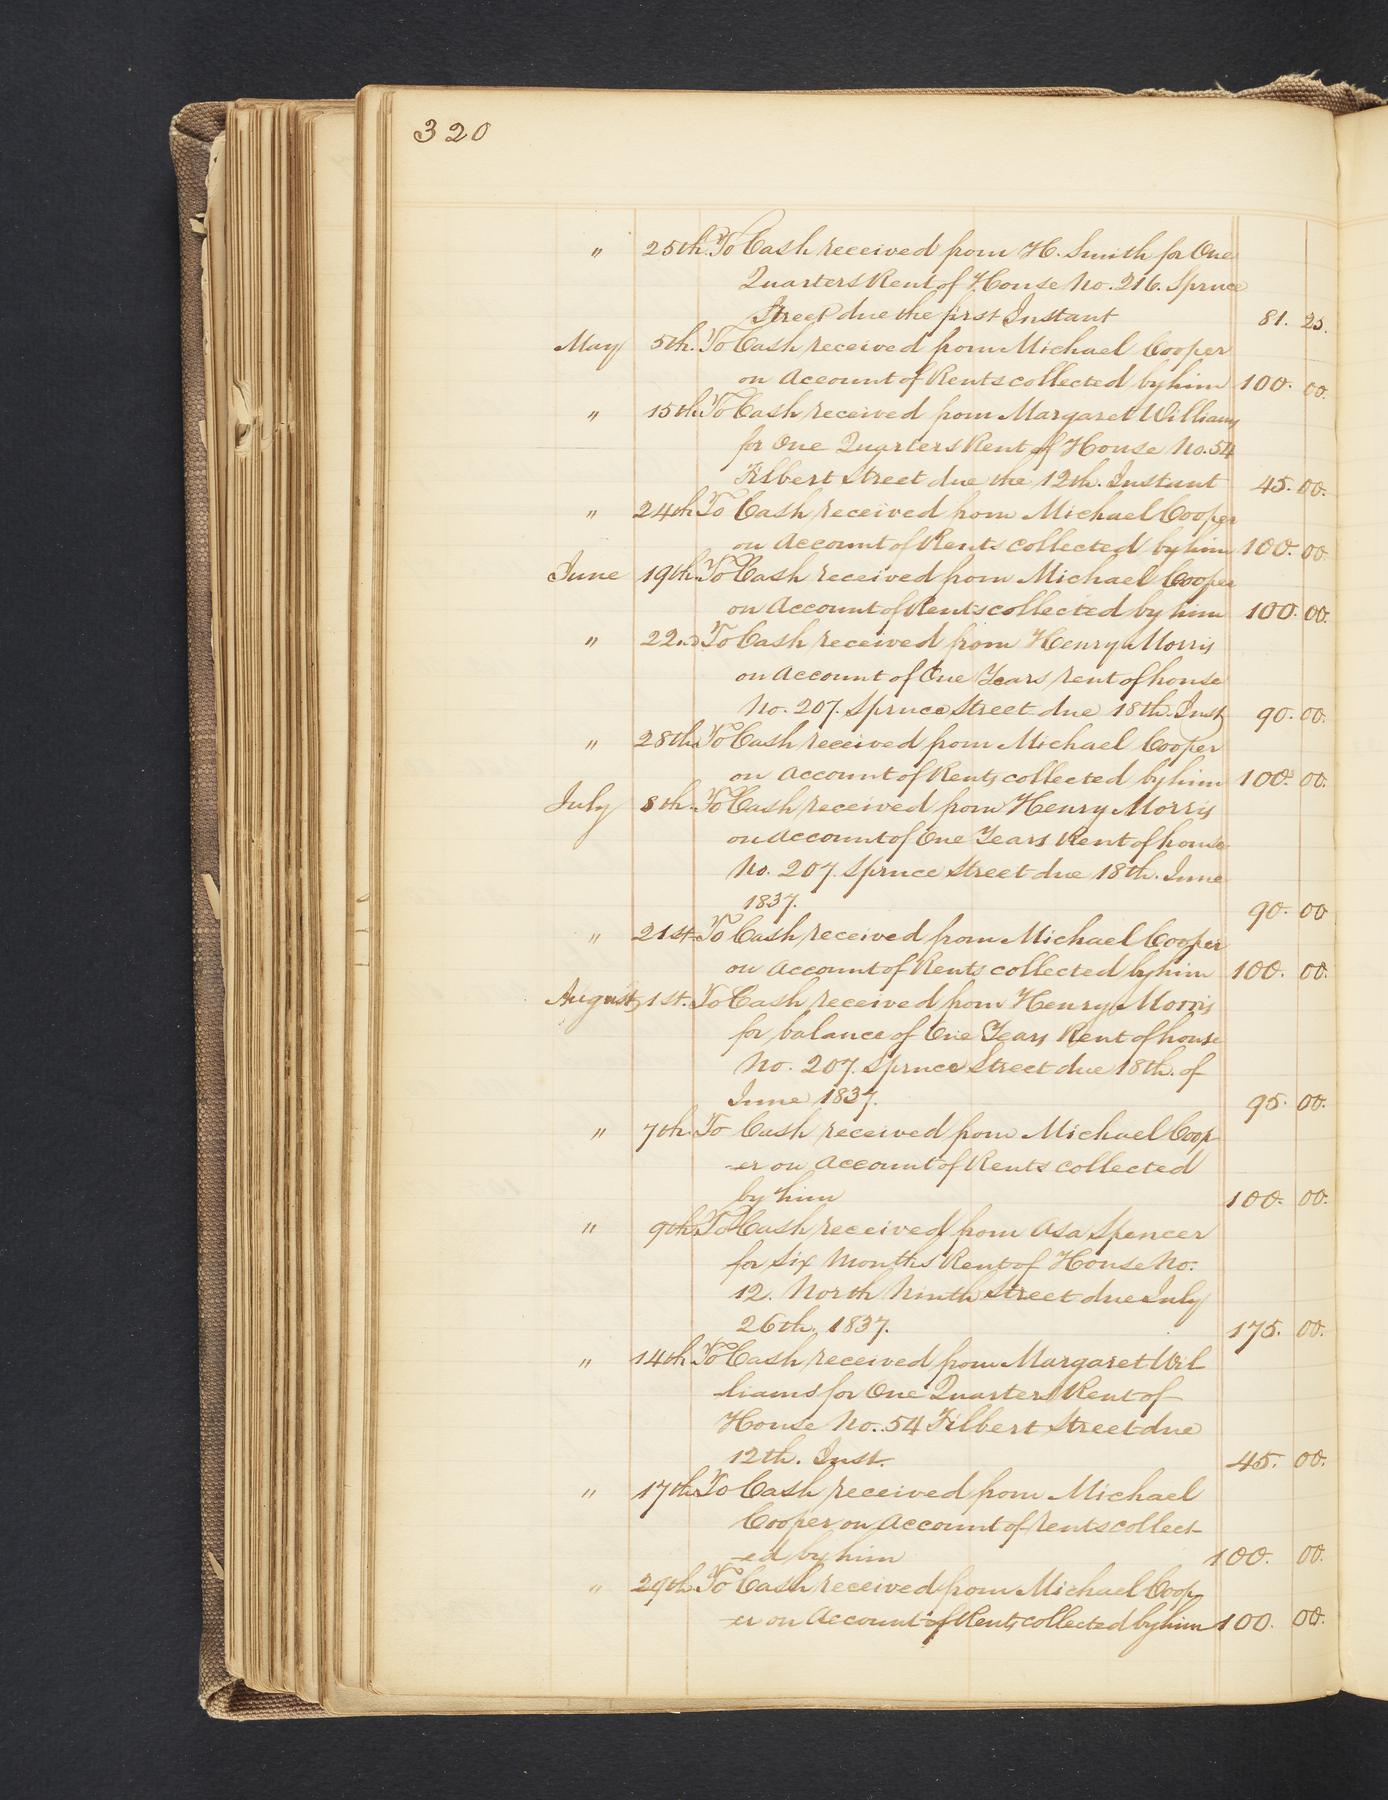 320
" 25th. To Cash received from H. Smith for One
Quarters Rent of House No. 216. Spruce
Street due the first Instant 81. 25.
May 5th. To Cash received from Michael Cooper
on Account of Rents collected by him 100. 00.
" 15th To Cash received from Margaret Williams
for One Quarters Rent of House No. 54
Filbert Street due the 12th. Instant 45. 00.
" 24th To Cash received from Michael Cooper
on Account of Rents collected by him 100. 00
June 19th To Cash received from Michael Cooper
on Account of Rents collected by him 100. 00.
" 22nd To Cash received from Henry Morris
on Account of One Years rent of house
No. 207. Spruce Street due 18th. Inst 90. 00.
" 28th To Cash received from Michael Cooper
on Account of Rents collected by him 100. 00.
July 8th. To Cash received from Henry Morris
on Account of One Years Rent of house
No. 207. Spruce Street due 18th. June
1837. 90. 00
" 21st To Cash received from Michael Cooper
on Account of Rents collected by him 100. 00.
August 1st. To Cash received from Henry Morris
for balance of One Years Rent of house
No. 207. Spruce Street due 18th. of
June 1837. 95. 00.
" 7th. To Cash received from Michael Coop
-er on Account of Rents collected
by him 100. 00.
" 9th To Cash received from Asa Spencer
for Six Months Rent of House No.
12. North Ninth Street due July
26th. 1837. 175. 00.
" 14th To Cash received from Margaret Wil
liams for One Quarters Rent of
House No. 54 Filbert Street due
12th. Inst. 45. 00.
" 17th To Cash received from Michael
Cooper on Account of rents collect-
-ed by him 100. 00.
" 29th. To Cash received from Michael Coop
-er on Account of Rents collected by him 100. 00.